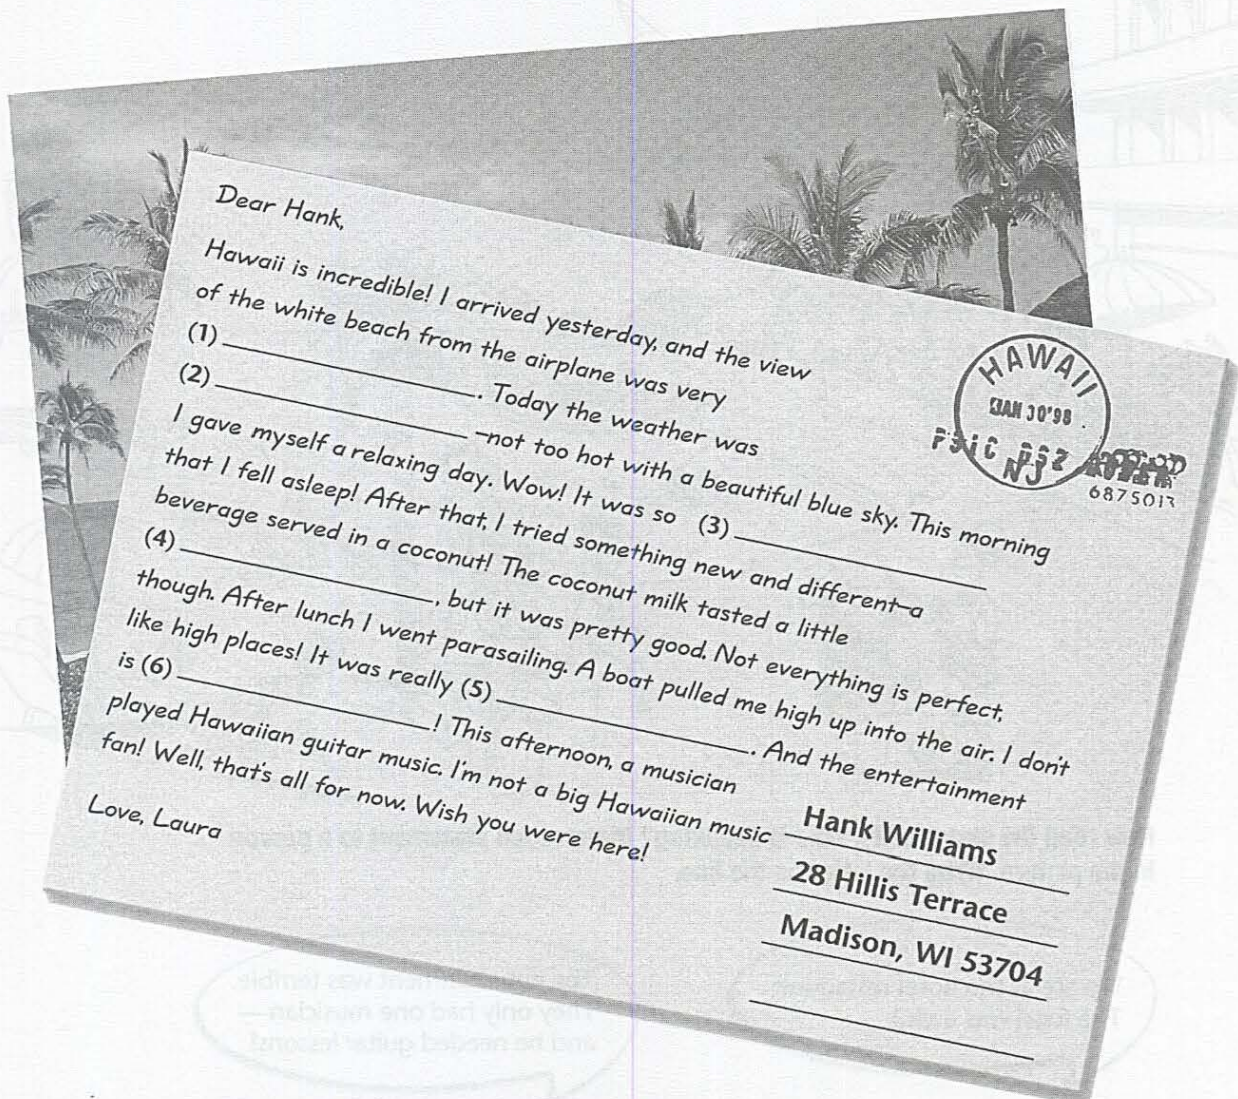 Dear Hank,
Hawaii is incredible! I arrived yesterday, and the view
of the white beach from the airplane was very
(1) ____________. Today the weather was
(2) ____________ –not too hot with a beautiful blue sky. This morning
I gave myself a relaxing day. Wow! It was so (3) ____________
that I fell asleep! After that, I tried something new and different–a
beverage served in a coconut! The coconut milk tasted a little
(4) ____________, but it was pretty good. Not everything is perfect,
though. After lunch I went parasailing. A boat pulled me high up into the air. I don't
like high places! It was really (5) ____________. And the entertainment
is (6) ____________! This afternoon, a musician
played Hawaiian guitar music. I'm not a big Hawaiian music
fan! Well, that's all for now. Wish you were here!
Love, Laura
HAWAII
JAN 30'98
NJ
Hank Williams
28 Hillis Terrace
Madison, WI 53704